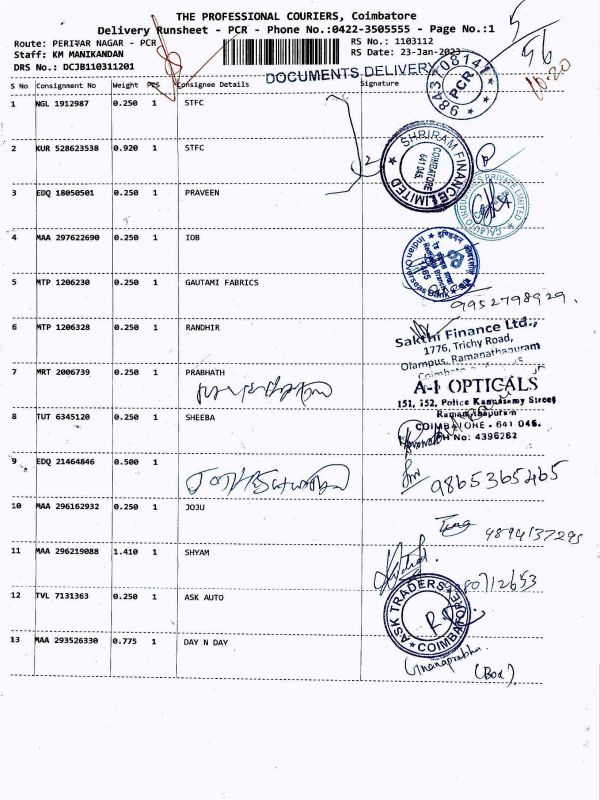 THE PROFESSIONAL COURIERS, Coimbatore
Delivery Runsheet - PCR - Phone No.:0422-3505555 - Page No.:1
Route: PERIYAR NAGAR - PCR
RS No.: 1103112
Staff: KM MANIKANDAN
RS Date: 23-Jan-2023
DRS No.: DCJB110311201
DOCUMENTS DELIVERY
9843708141
PCR
5
56
10.20
S No Consignment No Weight PCS Consignee Details Signature
1 NGL 1912987 0.250 1 STFC
2 KUR 528623538 0.920 1 STFC
2
SHRIRAM FINANCE LIMITED
COIMBATORE
641 045.
3 EDQ 18050501 0.250 1 PRAVEEN
4 MAA 297622690 0.250 1 IOB
Indian Overseas Bank
5 MTP 1206230 0.250 1 GAUTAMI FABRICS
9952798929.
6 MTP 1206328 0.250 1 RANDHIR
Sakthi Finance Ltd.,
1776, Trichy Road,
Olampus, Ramanathapuram
7 MRT 2006739 0.250 1 PRABHATH
A-1 OPTICALS
151, 152, Police Kandasamy Street
Ramanathapuram
COIMBATORE - 641 045.
PH No: 4396262
8 TUT 6345120 0.250 1 SHEEBA
9 EDQ 21464846 0.500 1
9865365465
10 MAA 296162932 0.250 1 JOJU
9894137295
11 MAA 296219088 1.410 1 SHYAM
12 TVL 7131363 0.250 1 ASK AUTO
ASK TRADERS
COIMBATORE
13 MAA 293526330 0.775 1 DAY N DAY
Gnanaprabhu
(Box)